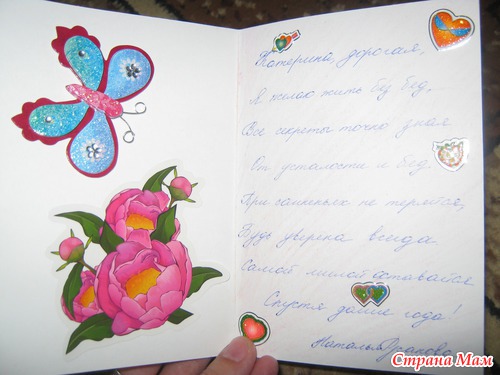 Катерина, дорогая,
Я желаю жить без бед.
Все секреты точно зная
От усталости и бед.
При гаишниках не теряйся,
Будь уверена всегда
Самой милой оставайся
Спустя долгие года!
Наталья
Страна Мам